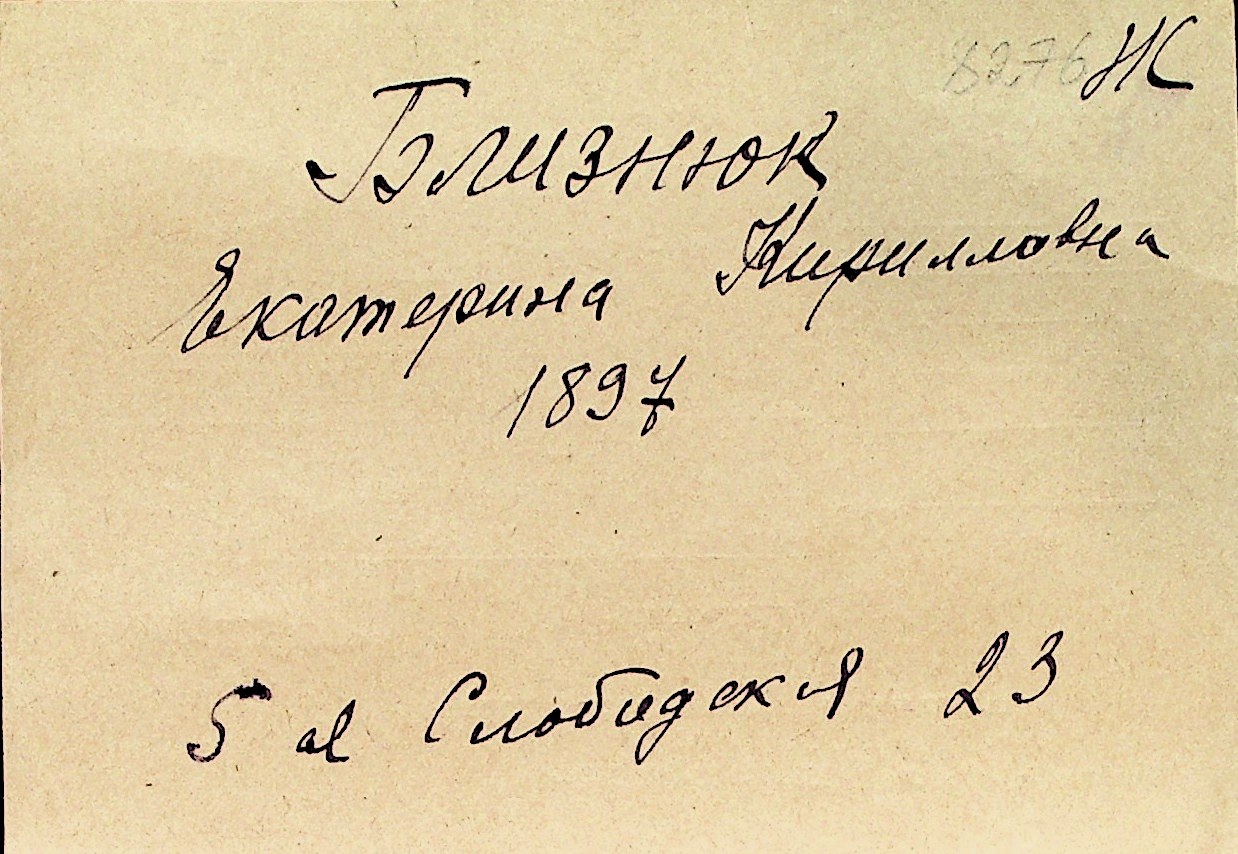 8276 Ж
Близнюк
Екатерина Кирилловна
1897
5 ая Слободская 23